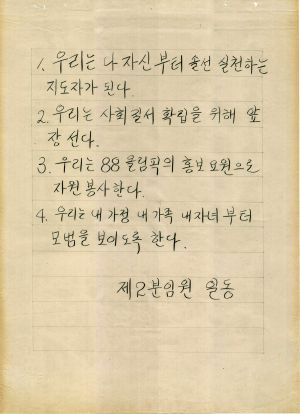 1. 우리는 나 자신부터 솔선 실천하는
지도자가 된다.
2. 우리는 사회질서 확립을 위해 앞
장 선다.
3. 우리는 88 올림픽의 홍보요원으로
자원봉사한다.
4. 우리는 내 가정 내 가족 내 자녀부터
모범을 보이도록 한다.
제2분임원 일동